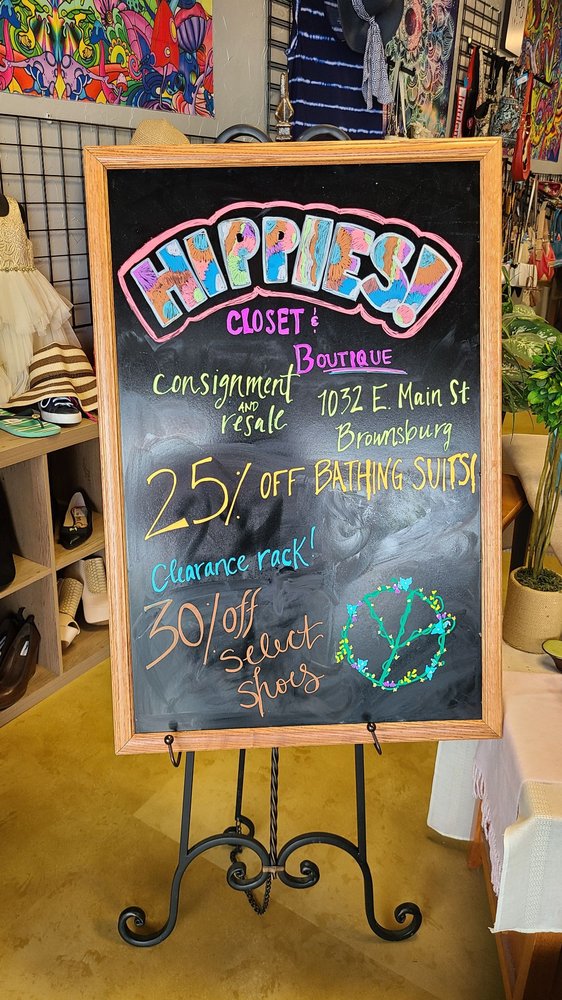 HIPPIES!
CLOSET &
BOUTIQUE
Consignment
AND
resale
1032 E. Main St.
Brownsburg
25% OFF BATHING SUITS!
Clearance rack!
30% off
Select
Shoes